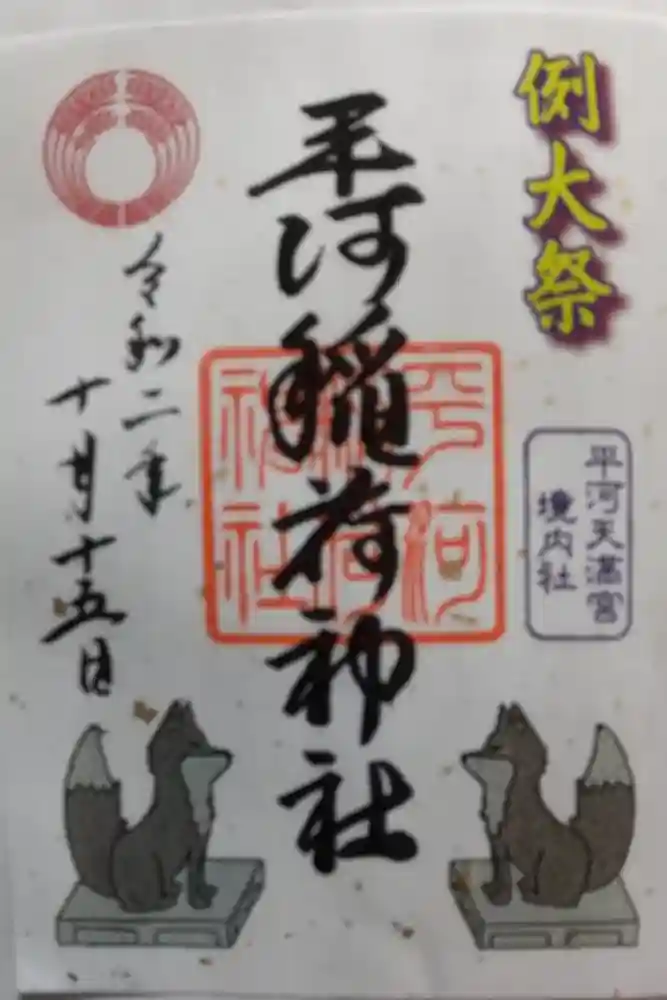 例大祭
平河天満宮
境内社
平河稲荷神社
平河
稲荷
神社
令和二年
十月十五日